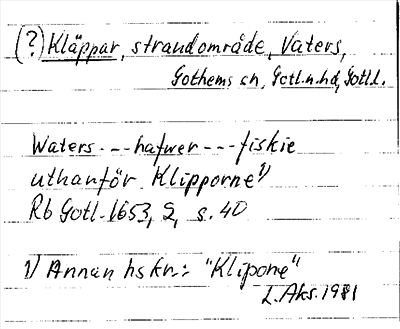 (?) Kläppar, strandområde, Vaters,
Gothems sn, Gotl.n.hd, Gotl.l.
Waters --- hafwer --- fiskie
uthanför Klipporne 1)
Rb Gotl. 1653, 2, s. 40
1) Annan hskr.: "Klipone"
L. Aks. 1981